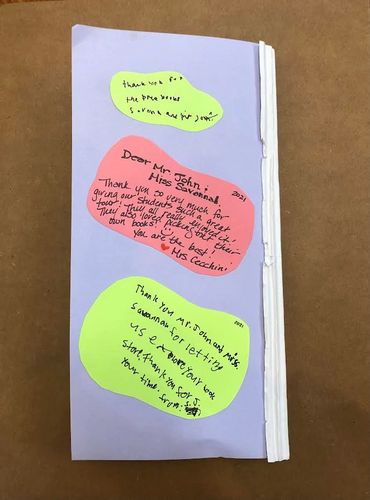 thank you for
the free books
Savanna and mr John!
Dear Mr. John &
Miss Savannah, 2021
Thank you so very much for
giving our students such a great
tour! They all really enjoyed it!
They also loved picking out their
own books! :)
You are the best!
♥ Mrs Cecchini
2021
Thank you Mr. John and Miss
Savannah for letting
us explore your book
store, thank you for
your time.
from: